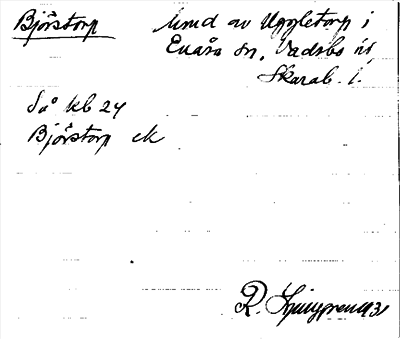 Björstorp und av Uggletorp i
Enåsa sn, Vadsbo hd,
Skarab. l.
Så kb 24
Björstorp ek
R. Ljunggren 1931